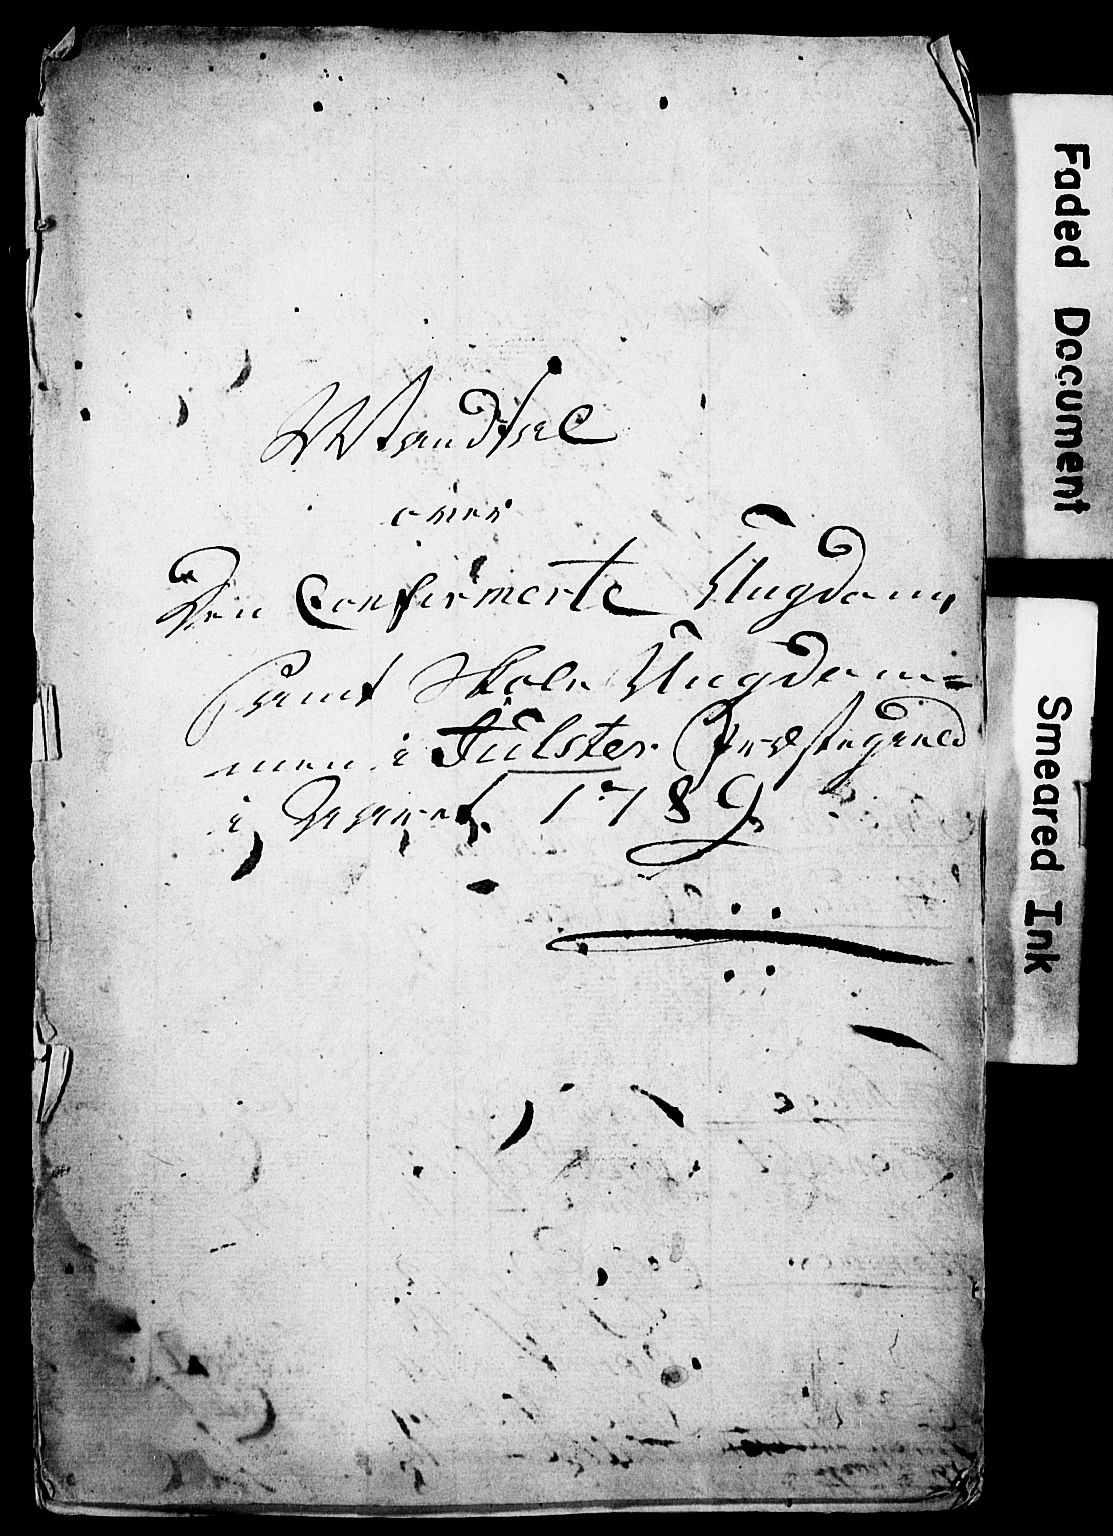 Mandtal
over
Den Confirmerte Ungdom,
samt Skole Ungdom=
men i Jülster Præstegield
i Aaret 1789.
Faded Document
Smeared Ink